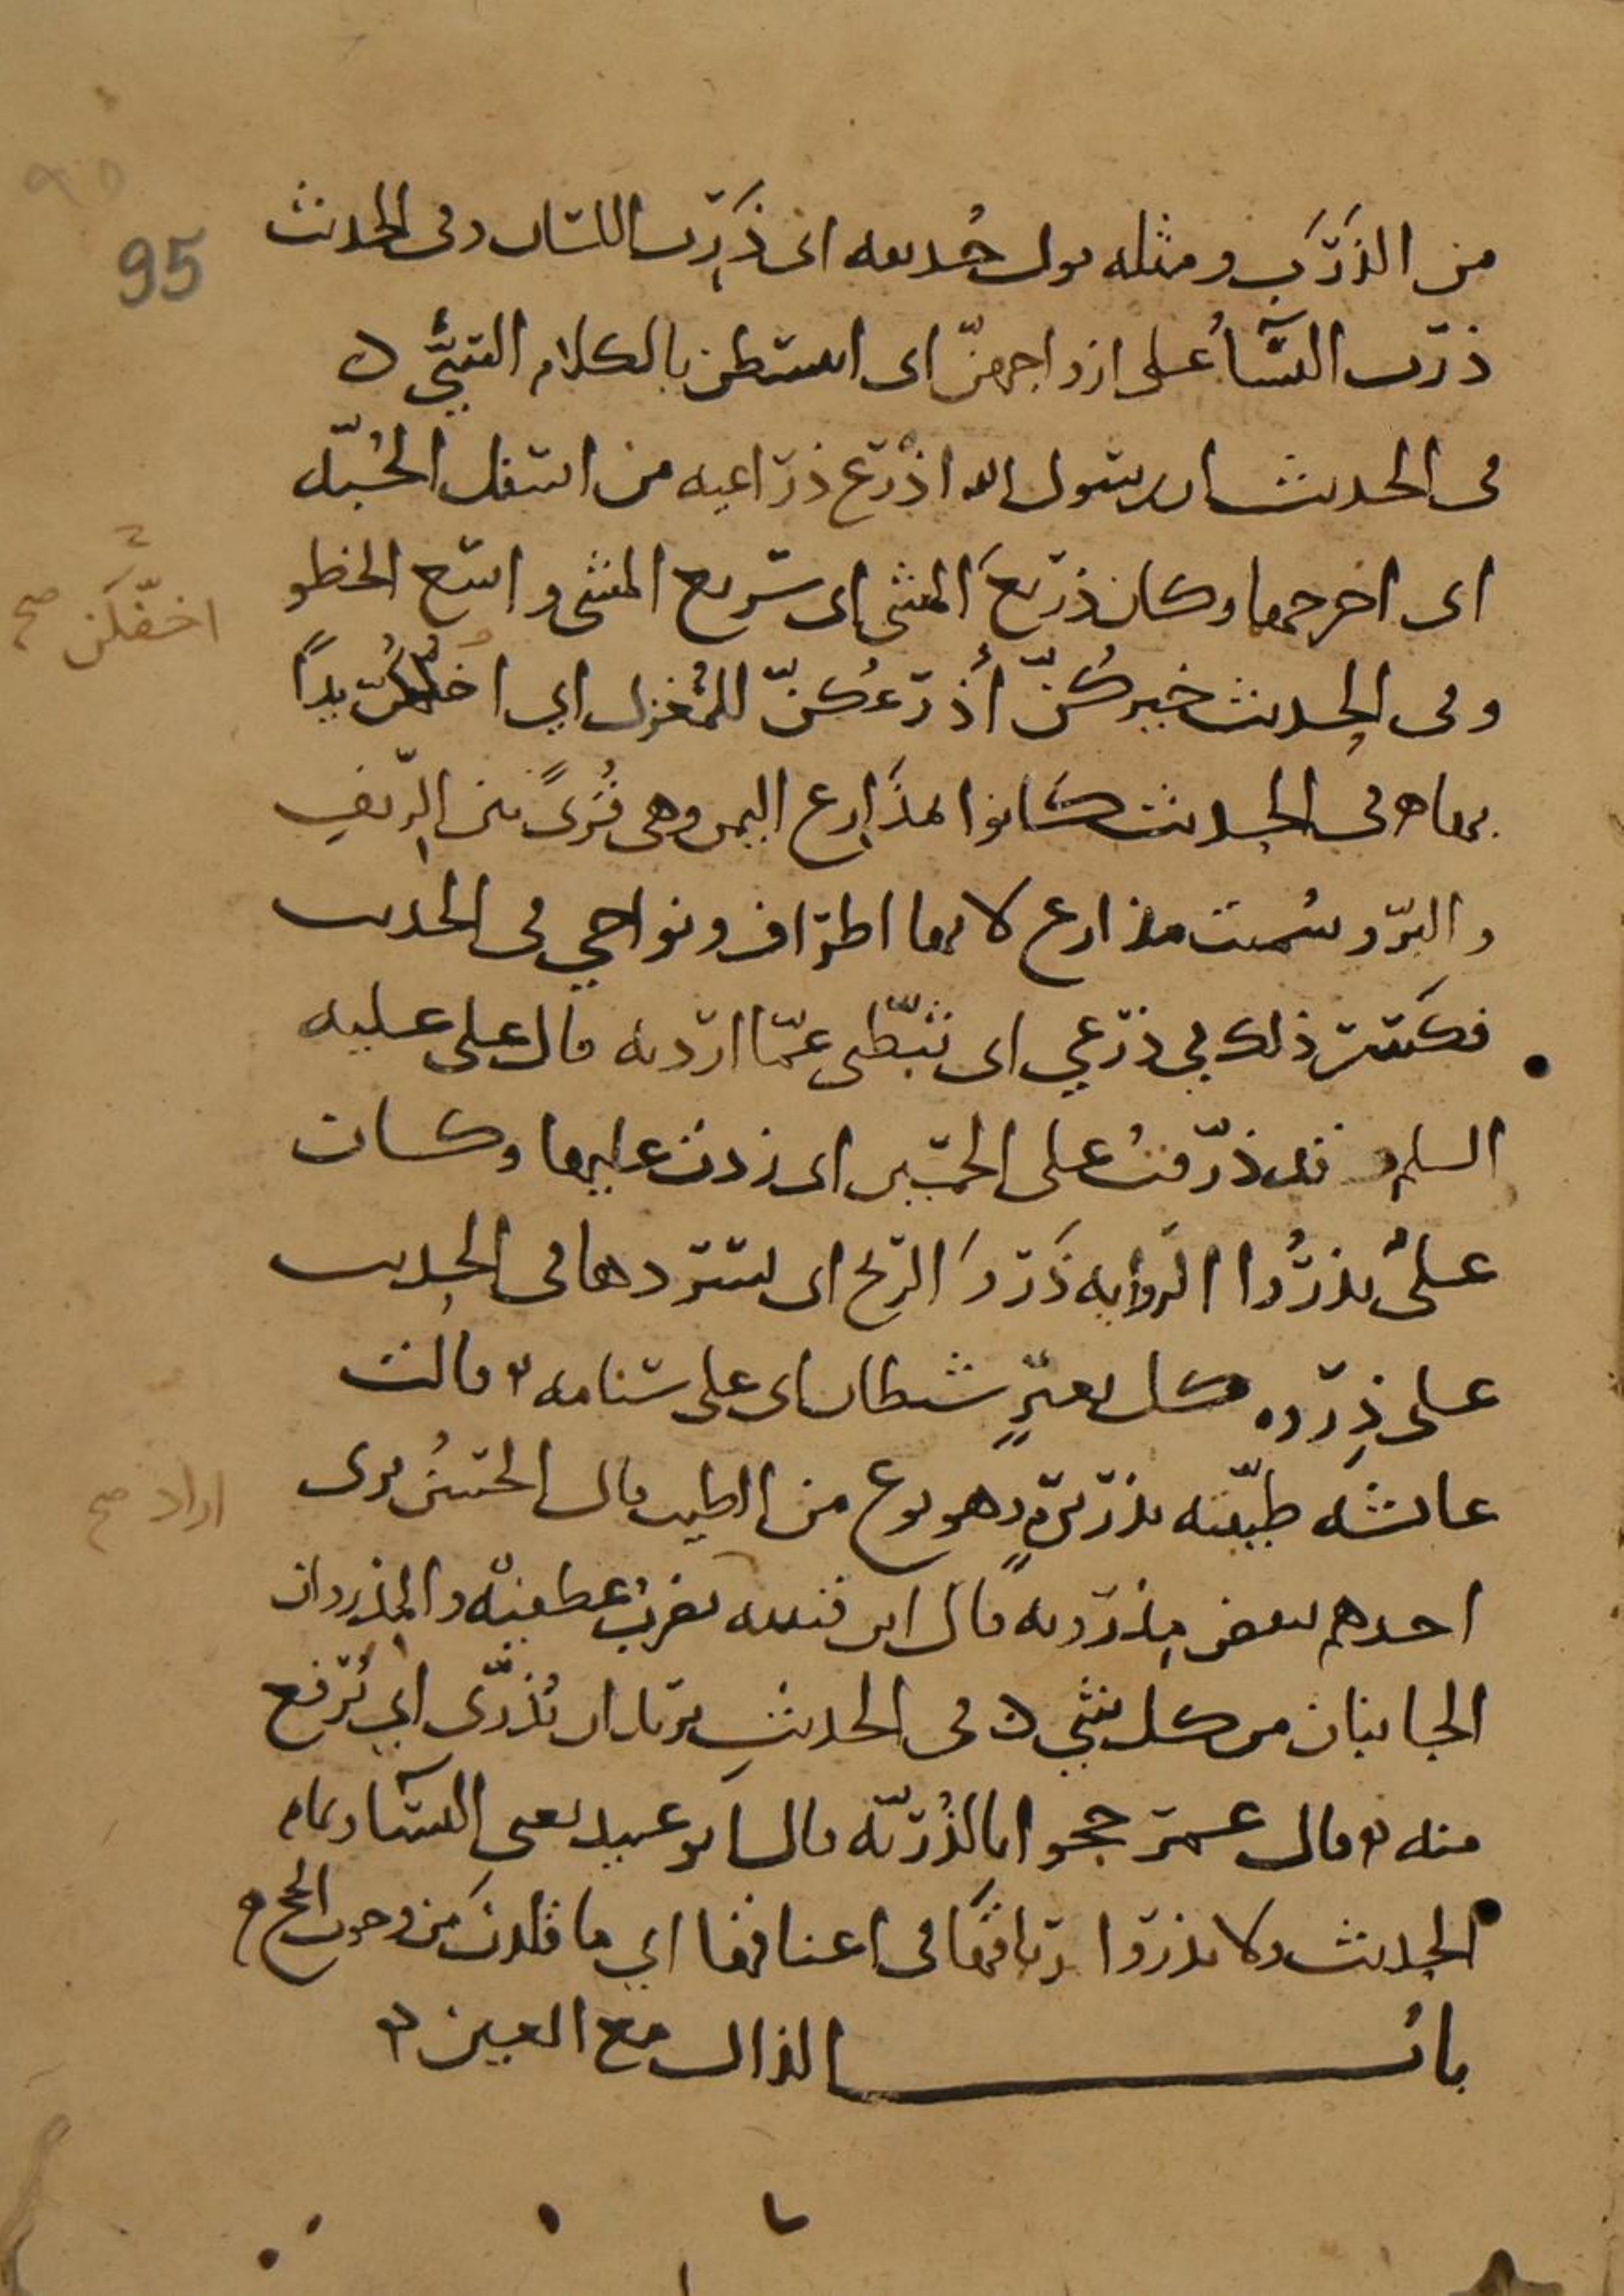 95
من الذَّرَبِ ومثله قول حُذيفه انى ذَرِب اللسان وفى الحديث
ذرب النسآءُ على ازواجهنّ اى انبسطن بالكلام السيّئ
فى الحديث ان رسول الله اذْرَع ذراعيه من اسفل الجُبّه
اى اخرجهما وكان ذريعَ المشى اى سريع المشى واسع الخطو
وفى الحديث خيركُنّ أَذْرَعُكنّ للمُغزل اي اخفّكن يداً
اخفّكن صح
بها فى الحديث كانوا بمذَارِع اليمن وهى قُرىً بين الرّيفِ
والبرّ وسُميت مذارع لانها اطراف ونواحي فى الحديث
فكسر ذلك في ذرعي اى ثبّطنى عمّا اردته قال على عليه
السلم قد ذرّفتُ على الخمسين اى زدت عليها وكان
علىٌ يذرُوا الروايه ذَروَ الريح اى يسردها فى الحديث
على ذِروه كل بعيرٍ شيطان اى على سنامه وقالت
عائشه طيّبته بذريرةٍ وهو نوع من الطيب قال الحسنُ ترى
اراد صح
احدهم ينفض مِذرويه قال ابن قتيبه يضربُ عطفيْه والمِذروان
الجانبان من كل شيٍ فى الحديثِ يريد ان يُذرّى اي يُرفع
منه وقال عمر حجوا بالذُريّه قال ابو عبيد يعنى النسآء وتمام
الحديث ولا تذروا ارباقها فى اعناقها اي ما قُلدتَ من وجوب الحج
بابُ الذال مع العين